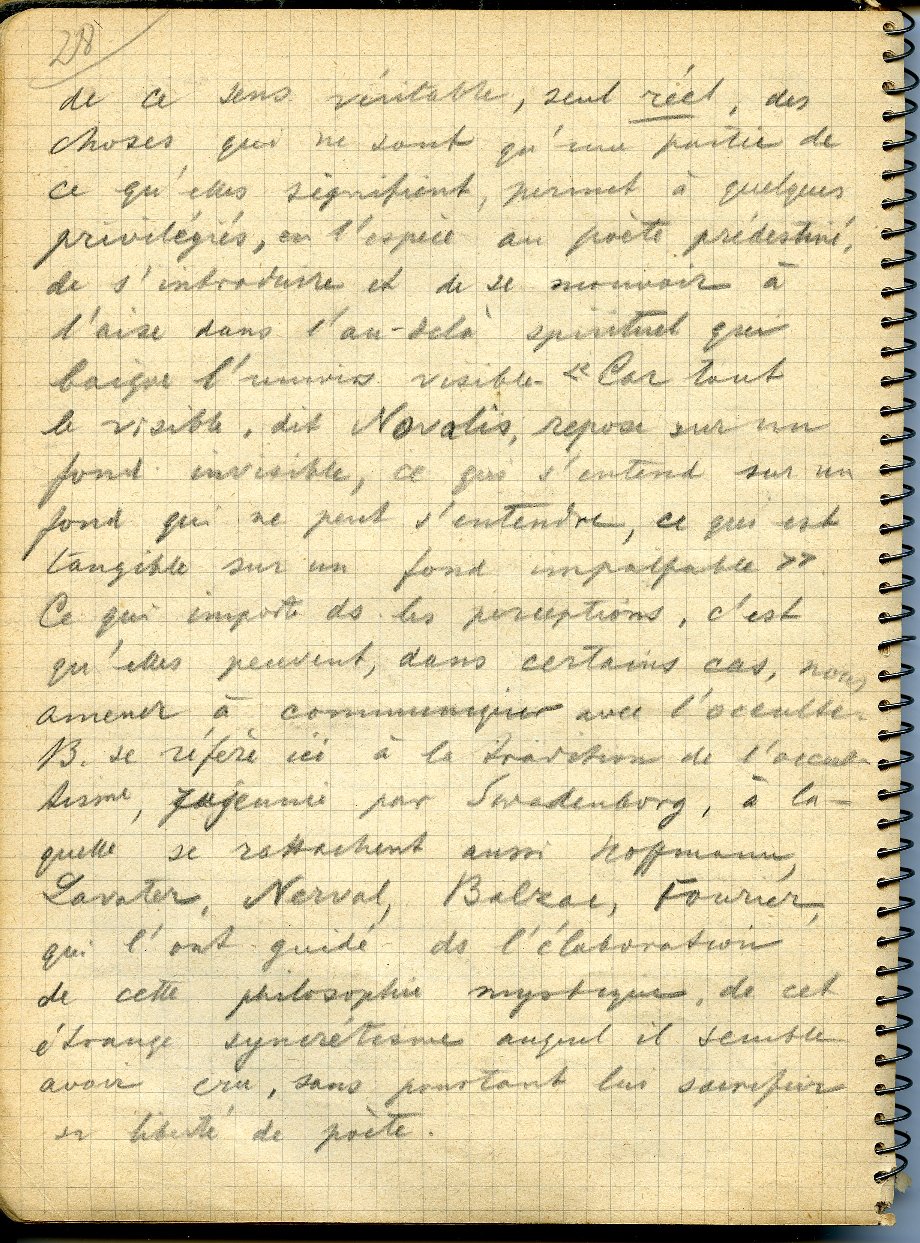 28
de ce sens véritable, seul réel, des
choses qui ne sont qu'une partie de
ce qu'elles signifient, permet à quelques
privilégiés, en l'espèce au poète prédestiné,
de s'introduire et de se mouvoir à
l'aise dans l'au-delà spirituel qui
baigne l'univers visible. « Car tout
le visible, dit Novalis, repose sur un
fond invisible, ce qui s'entend sur un
fond qui ne peut s'entendre, ce qui est
tangible sur un fond impalpable »
Ce qui importe ds les perceptions, c'est
qu'elles peuvent, dans certains cas, nous
amener à communiquer avec l'occulte.
B. se réfère ici à la tradition de l'occul-
tisme, par Swedenborg, à la-
quelle se rattachent aussi Hoffmann,
Lavater, Nerval, Balzac, Fourier,
qui l'ont guidé ds l'élaboration
de cette philosophie mystique, de cet
étrange syncrétisme auquel il semble
avoir cru, sans pourtant lui sacrifier
sa liberté de poète.